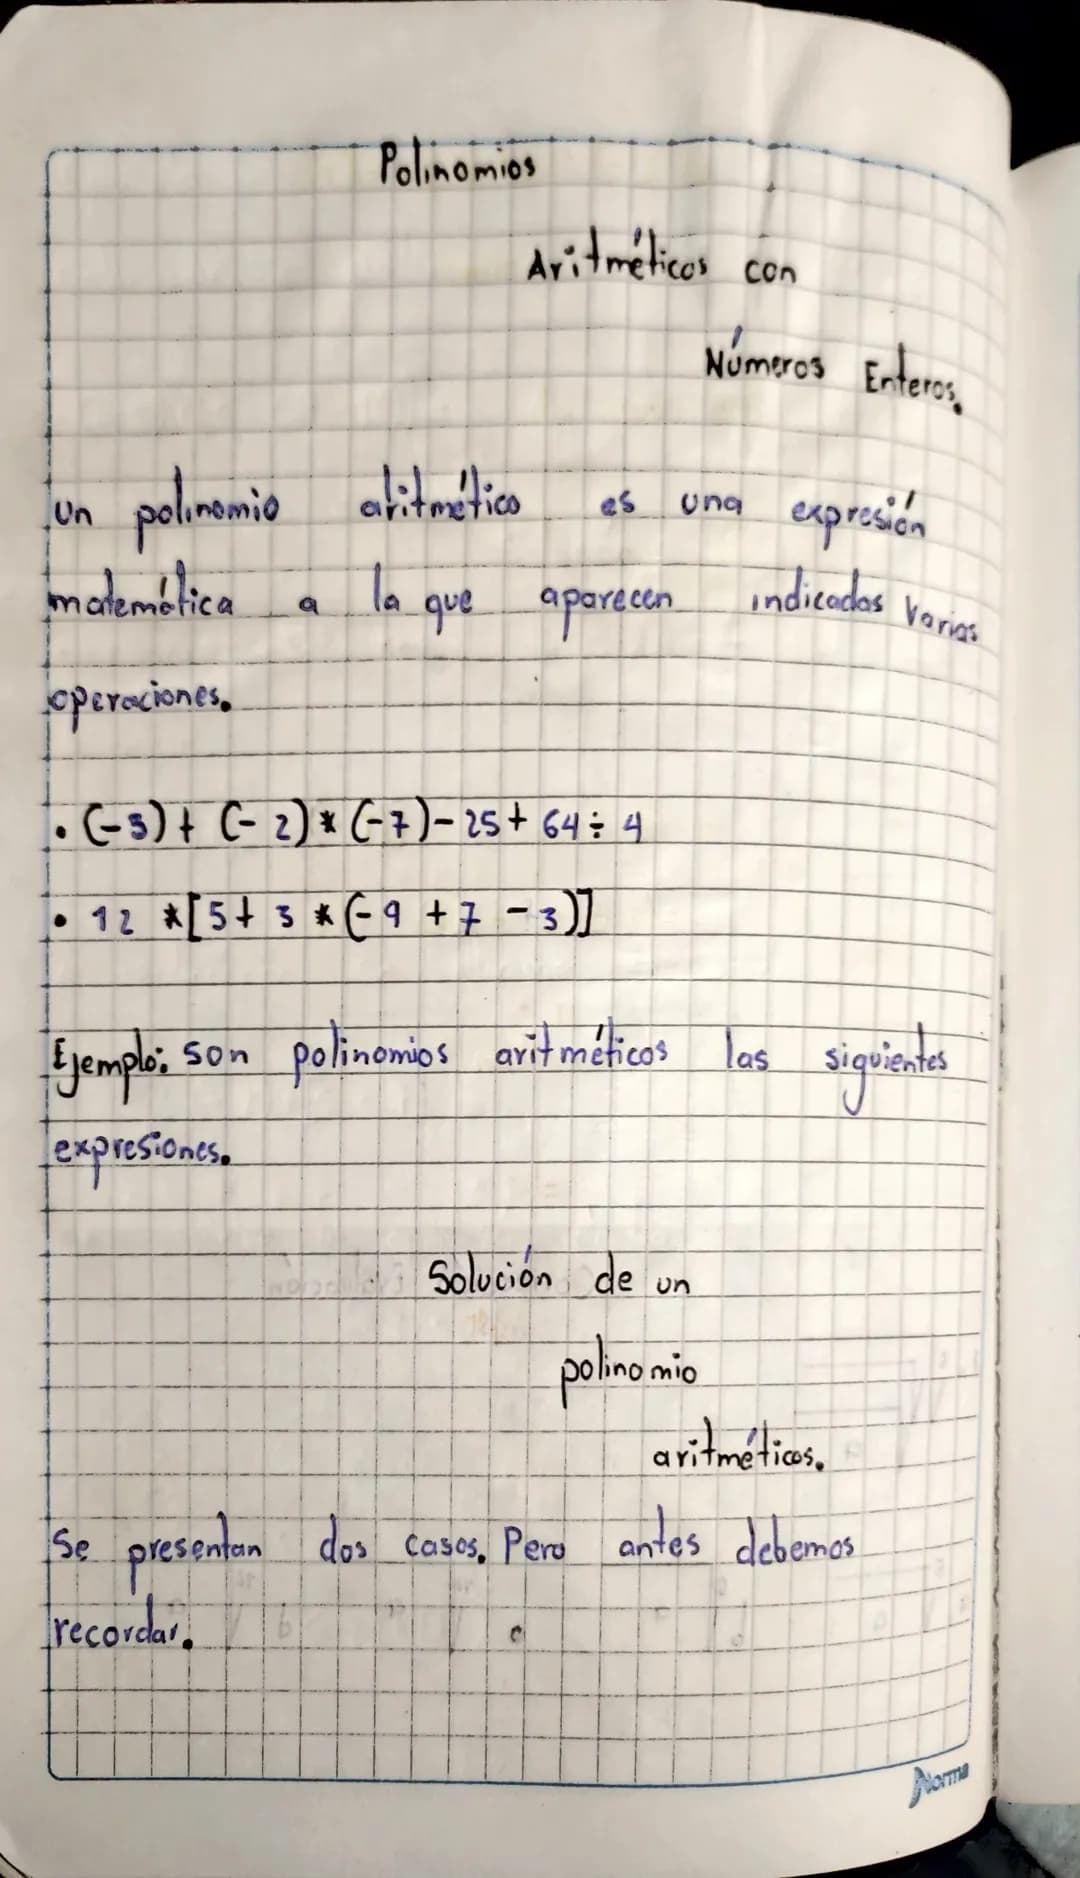 Polinomios
Aritméticos con
Números Enteros.
Un polinomio aritmético es una expresión
matemática a la que aparecen indicadas varias
operaciones.
• (-3) + (-2) * (-7) - 25 + 64 ÷ 4
• 12 * [5 + 3 * (-9 + 7 - 3)]
Ejemplo: Son polinomios aritméticos las siguientes
expresiones.
Solución de un
polinomio
aritméticos.
Se presentan dos casos. Pero antes debemos
recordar.
Norma